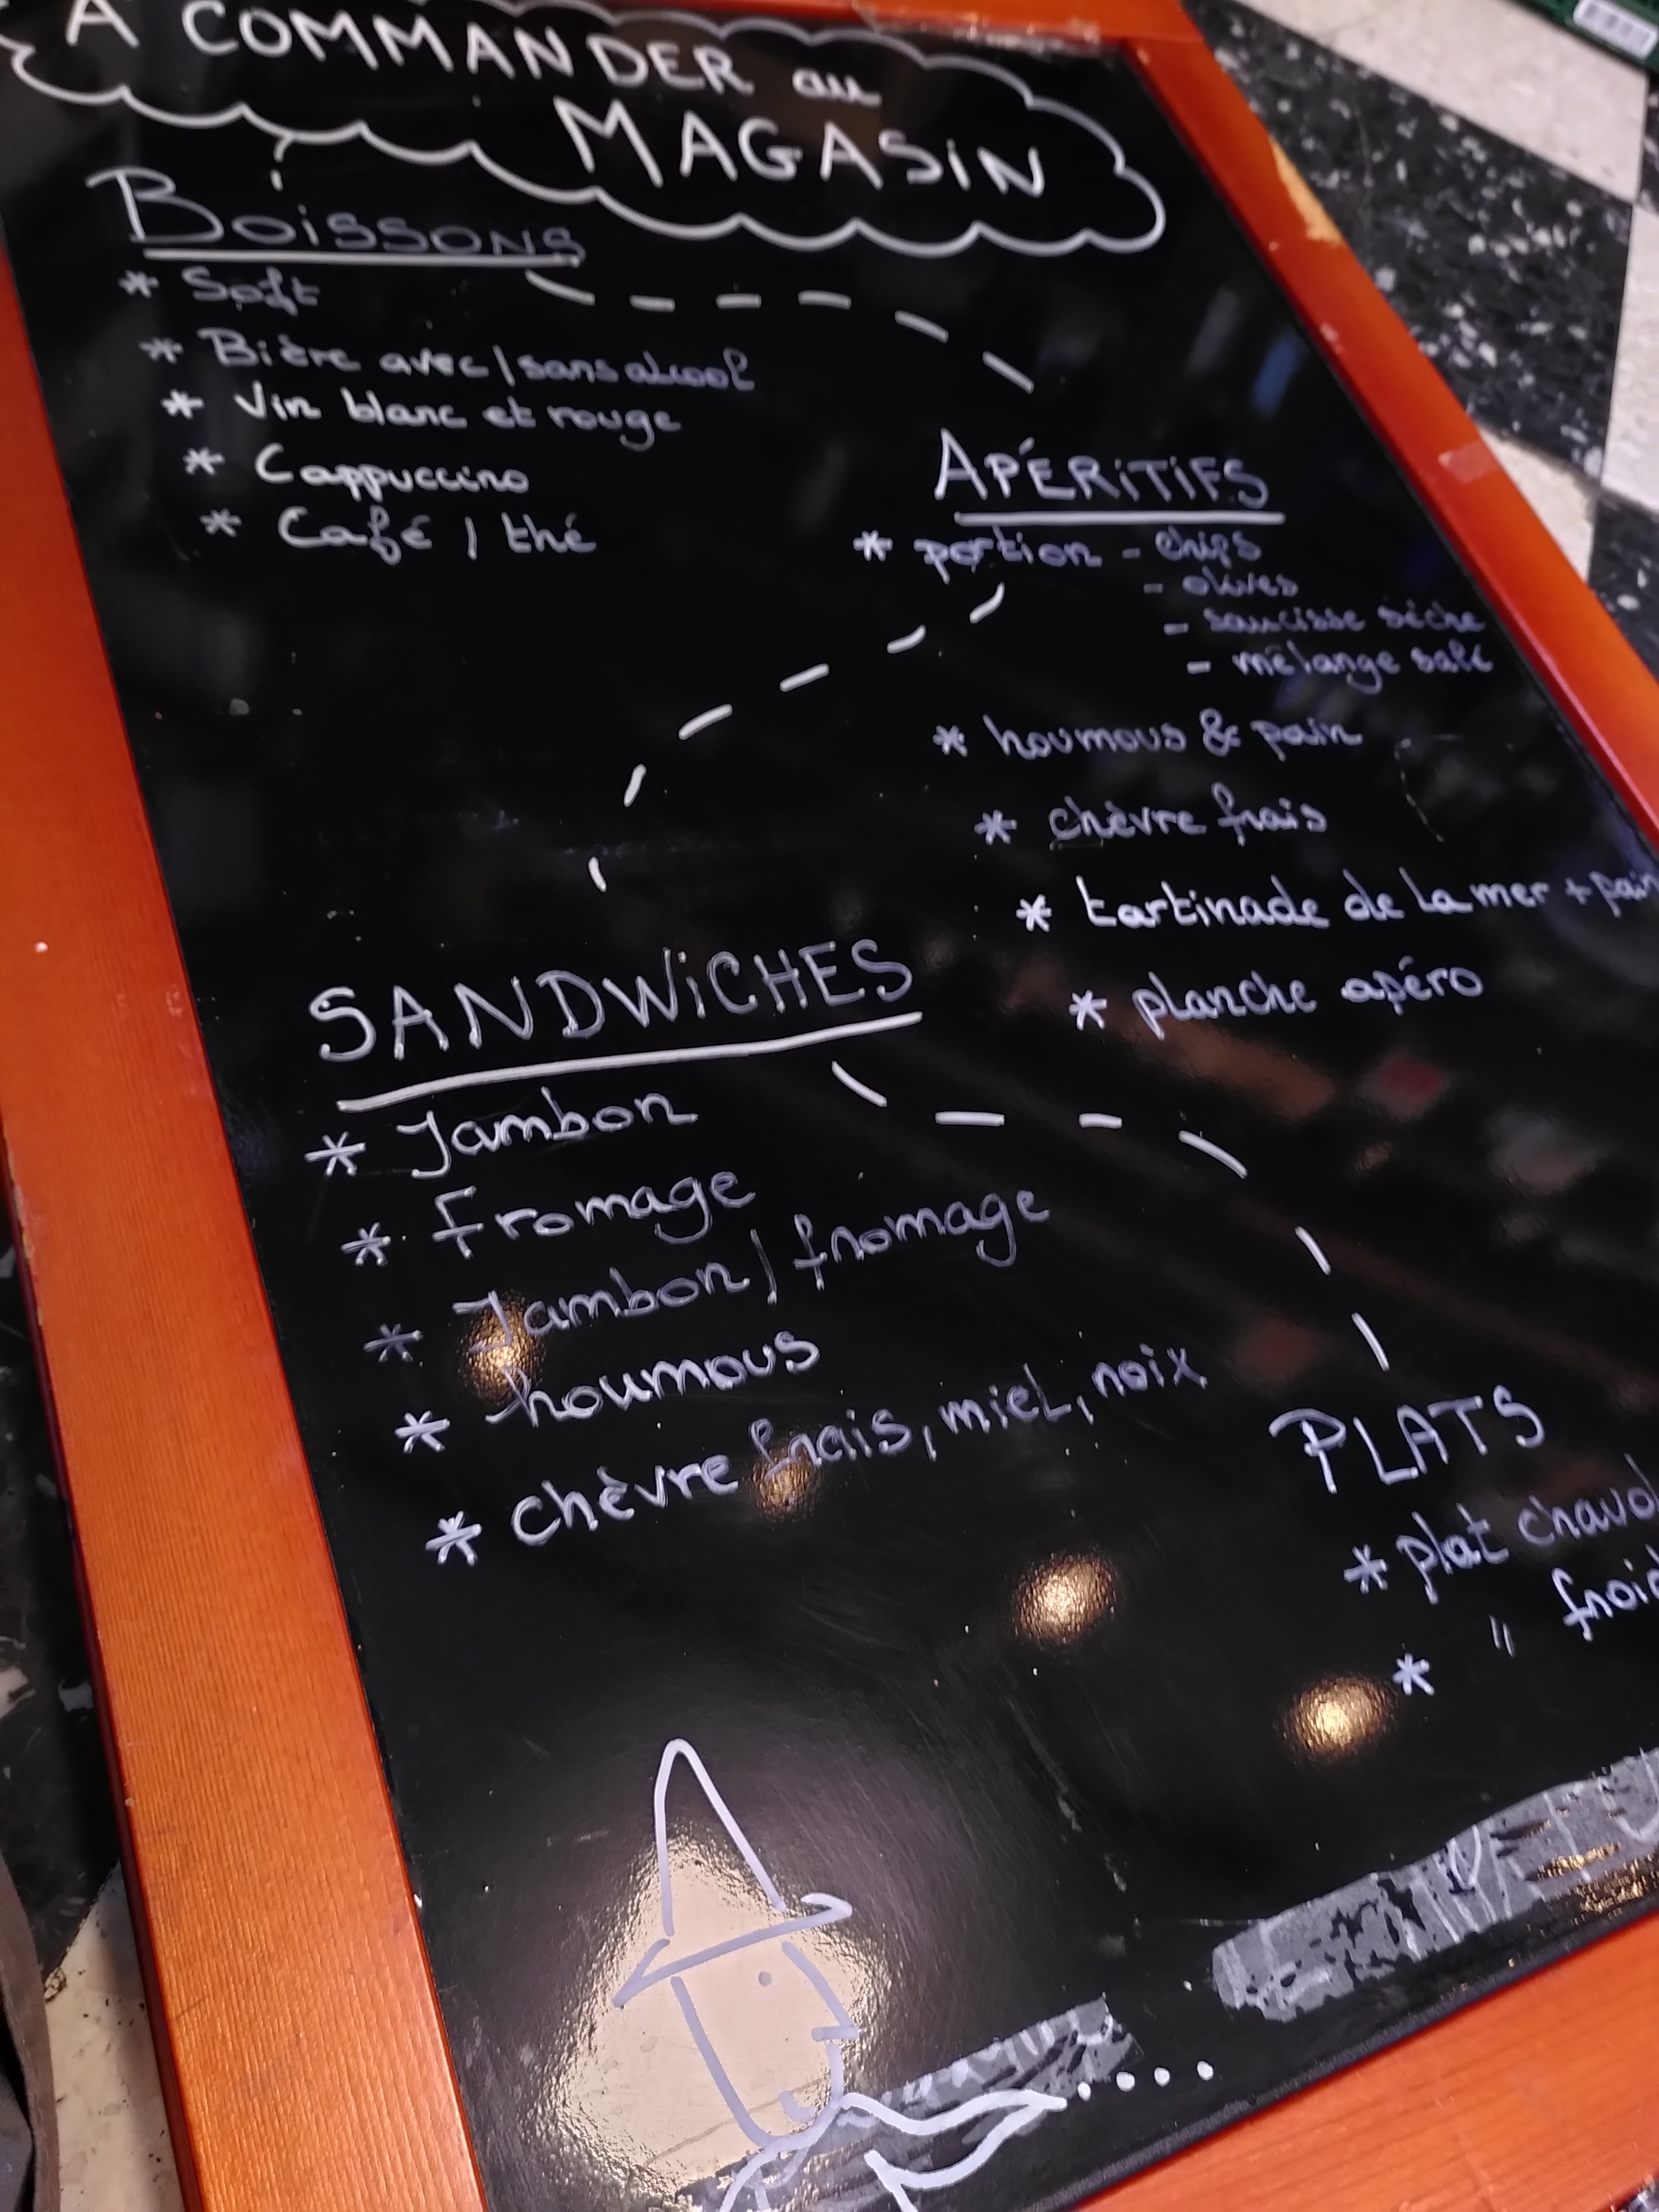 A COMMANDER au
MAGASiN
BoissoNS
* Soft
* Bière avec/sans alcool
* Vin blanc et rouge
* Cappuccino
* Café / thé
APÉRiTiFS
* portion - chips
- olives
- saucisse sèche
- mélange salé
* houmous & pain
* chèvre frais
* tartinade de la mer + pain
* planche apéro
SANDWiCHES
* Jambon
* Fromage
* Jambon/fromage
* houmous
* chèvre frais, miel, noix
PLATS
* plat
* "